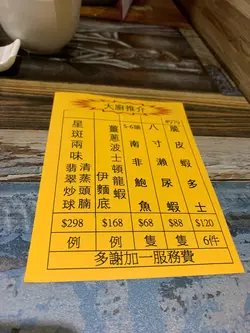 大廚推介
脆皮蝦多士
$120
6件
八寸瀨尿蝦
$88
隻
5-6頭
南非鮑魚
$68
隻
薑蔥波士頓龍蝦
伊麵底
$168
例
星斑兩味
清蒸頭腩
翡翠炒球
$298
例
多謝加一服務費